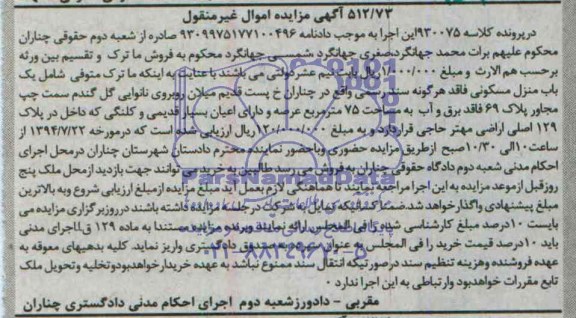 ۵۱۲/۷۳ آگهی مزایده اموال غیرمنقول
درپرونده کلاسه ۹۳۰۰۷۵ این اجرا به موجب دادنامه ۹۳۰۹۹۷۵۱۷۷۱۰۰۴۹۶ صادره از شعبه دوم حقوقی چناران
محکوم علیهم برات محمد جهانگرد،صغری جهانگرد ،شمسی جهانگرد محکوم به فروش ما ترک و تقسیم بین ورثه
برحسب هم الارث و مبلغ ۱/۰۰۰/۰۰۰ ریال بابت نیم عشردولتی می باشند با عنایت به اینکه ما ترک متوفی شامل یک
باب منزل مسکونی فاقد هرگونه سند رسمی واقع در چناران خ پست قدیم میلان روبروی نانوایی گل گندم سمت چپ
مجاور پلاک ۶۹ فاقد برق و آب به مساحت ۷۵ مترمربع عرصه و دارای اعیان بسیار قدیمی و کلنگی که داخل در پلاک
۱۲۹ اصلی اراضی مهتر حاجی قراردارد و به مبلغ ۱۲۰/۰۰۰/۰۰۰ ریال ارزیابی شده است که درمورخه ۱۳۹۴/۷/۲۲ از
ساعت ۱۰الی ۱۰/۳۰صبح ازطریق مزایده حضوری وباحضور نماینده محترم دادستان شهرستان چناران درمحل اجرای
احکام مدنی شعبه دوم دادگاه حقوقی چناران به فروش می رسد طالبین به خرید می توانند جهت بازدید ازمحل ملک پنج
روزقبل ازموعد مزایده به این اجرا مراجعه نمایند تا هماهنگی لازم بعمل آید مبلغ مزایده ازمبلغ ارزیابی شروع وبه بالاترین
مبلغ پیشنهادی واگذار خواهد شد ضمنا کسانیکه تمایل به شرکت در جلسه مزایده داشته باشند درروزبرگزاری مزایده می
بایست ۱۰درصد مبلغ کارشناسی شده را فی المجلس ارائه نمایند وبرنده مزایده مستندا به ماده ۱۲۹ ق.اجرای مدنی
باید ۱۰درصد قیمت خرید را فی المجلس به عنوان سپرده به صندوق دادگستری واریز نماید. کلیه بدهیهای معوقه به
عهده فروشنده وهزینه تنظیم سند درصورتیکه انتقال سند ممنوع نباشد به عهده خریدارخواهدبودوتخلیه وتحویل ملک
تابع مقررات خواهدبود وارتباطی به این اجرا ندارد .
مقربی - دادورزشعبه دوم اجرای احکام مدنی دادگستری چناران
ParsNamadData
۰۲۱-۸۸۳۴۹۶۷۰-۵